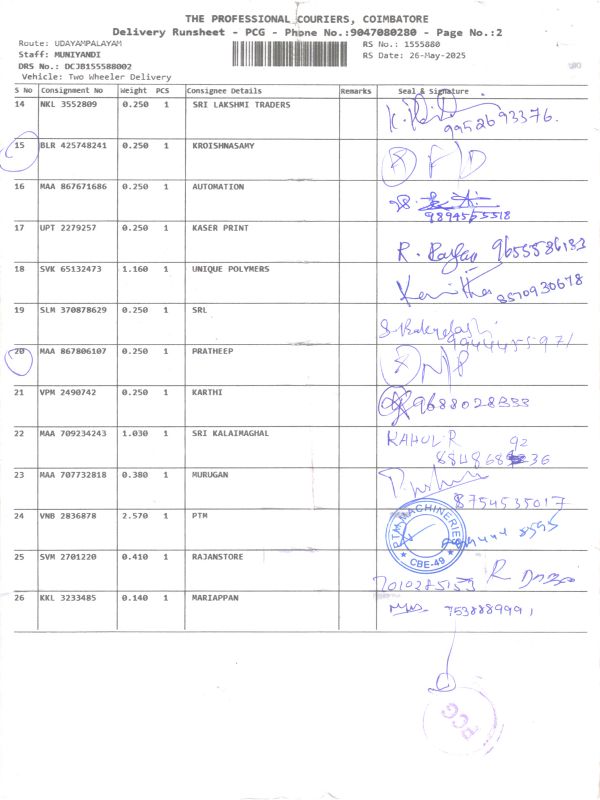 THE PROFESSIONAL COURIERS, COIMBATORE
Delivery Runsheet - PCG - Phone No.:9047080280 - Page No.:2
Route: UDAYAMPALAYAM
Staff: MUNIYANDI
DRS No.: DCJB155588002
Vehicle: Two Wheeler Delivery
RS No.: 1555880
RS Date: 26-May-2025
S No Consignment No Weight PCS Consignee Details Remarks Seal & Signature
14 NKL 3552809 0.250 1 SRI LAKSHMI TRADERS 9952693376.
15 BLR 425748241 0.250 1 KROISHNASAMY
16 MAA 867671686 0.250 1 AUTOMATION
17 UPT 2279257 0.250 1 KASER PRINT R.
18 SVK 65132473 1.160 1 UNIQUE POLYMERS 8570930678
19 SLM 370878629 0.250 1 SRL
20 MAA 867806107 0.250 1 PRATHEEP
21 VPM 2490742 0.250 1 KARTHI
22 MAA 709234243 1.030 1 SRI KALAIMAGHAL RAHUL.R
23 MAA 707732818 0.380 1 MURUGAN 8754535017
24 VNB 2836878 2.570 1 PTM PTM MACHINERIES CBE-49
25 SVM 2701220 0.410 1 RAJANSTORE
26 KKL 3233485 0.140 1 MARIAPPAN
PCG